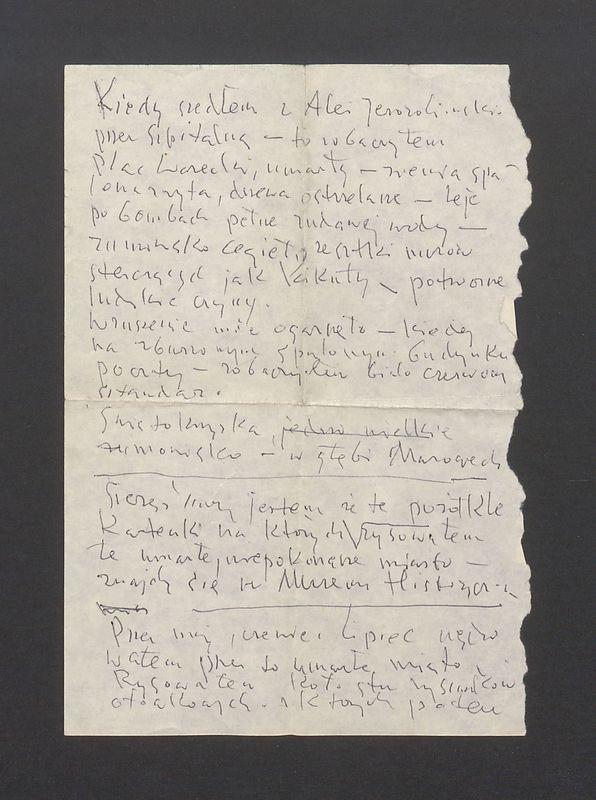 Kiedy szedłem z Alei Jerozolimskic
przez Szpitalną – to zobaczyłem
Plac Warecki, umarły – ziemia spa-
lona, zryta, drzewa ostrzelane – leje
po bombach pełne rudawej wody –
rumowisko cegieł, resztki murów
sterczące jak kikuty, potworne
ludzkie czyny.
Wzruszenie mnie ogarnęło – kiedy
na zburzonym spalonym budynku
poczty – zobaczyłem biało czerwony
sztandar.
Świętokrzyska, jedno wielkie
rumowisko – w głębi Marszałk
szczęśliwy jestem że te pożółkłe
karteluki na których rysowałem
te umarłe, niepokonane miasto –
znajdą się w Muzeum Historycz-
Przez maj, czerwiec lipiec wędro
wałem przez to umarłe miasto,
Rysowałem koło stu rysunków
ołówkowych z których potem